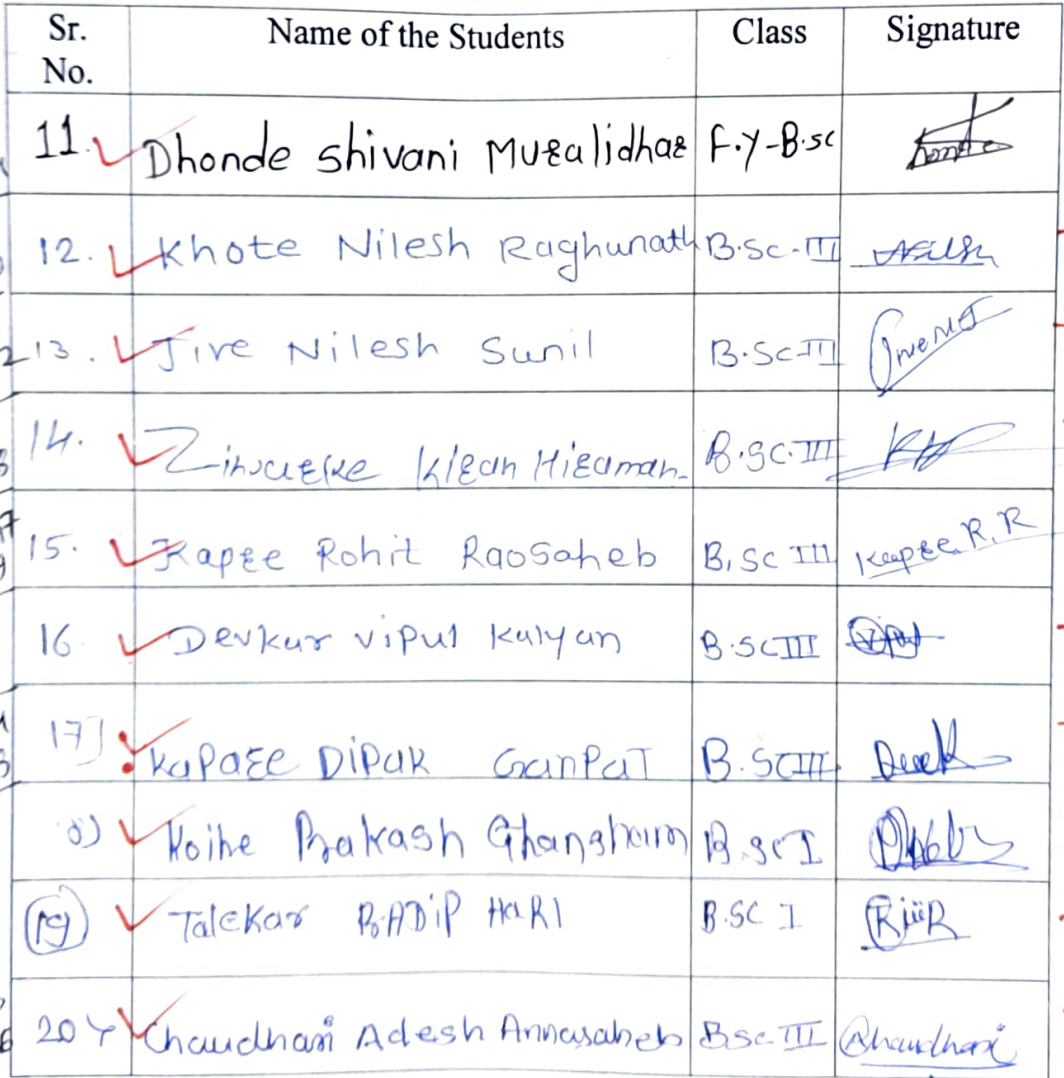 Sr. No. Name of the Students Class Signature
11. Dhonde Shivani Muralidhar F.Y-B.sc
12. Khote Nilesh Raghunath B.Sc-III Nilesh
13. Jire Nilesh Sunil B.Sc-III
14. Kiran Hiraman B.Sc.III
15. Kapre Rohit Raosaheb B.Sc III Kapre R.R
16 Devkar Vipul Kalyan B.Sc III
17) Kapare Dipak Ganpat B.Sc III
Prakash Ghansham B.Sc I
19 Talekar HARI B.SC I
20 Chaudhari Adesh Annasaheb Bsc.III Chaudhari